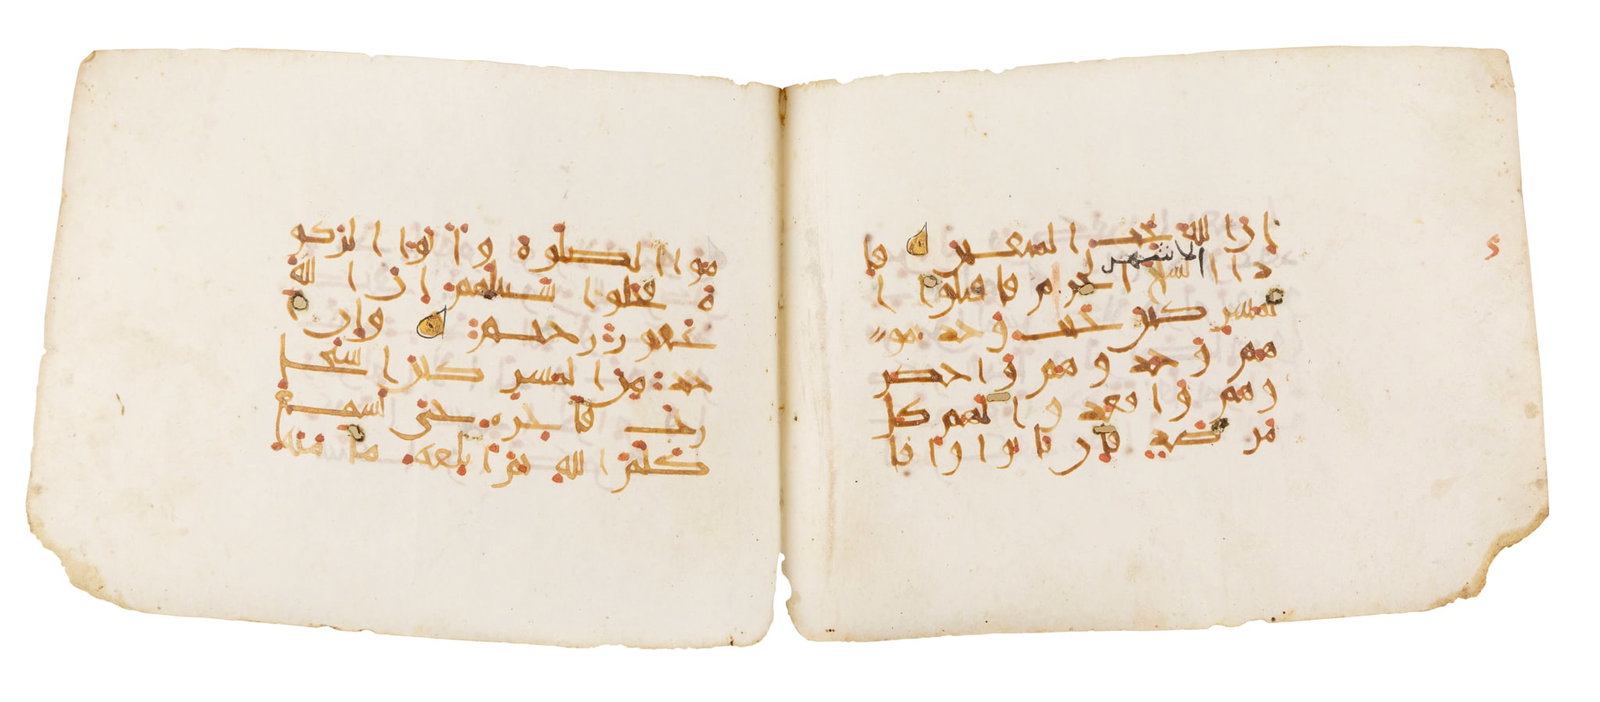 ان الله يحب المتقين فا
ذا انسلخ الاشهر الحرم فاقتلوا ا
لمشركين حيث وجدتمو
هم وخذوهم واحصر
وهم واقعدوا لهم كل
مرصد فان تابوا واقا
موا الصلوة واتوا الزكو
ة فخلوا سبيلهم ان الله
غفور رحيم وان ا
حد من المشركين استجا
رك فاجره حتى يسمع
كلم الله ثم ابلغه مامنه